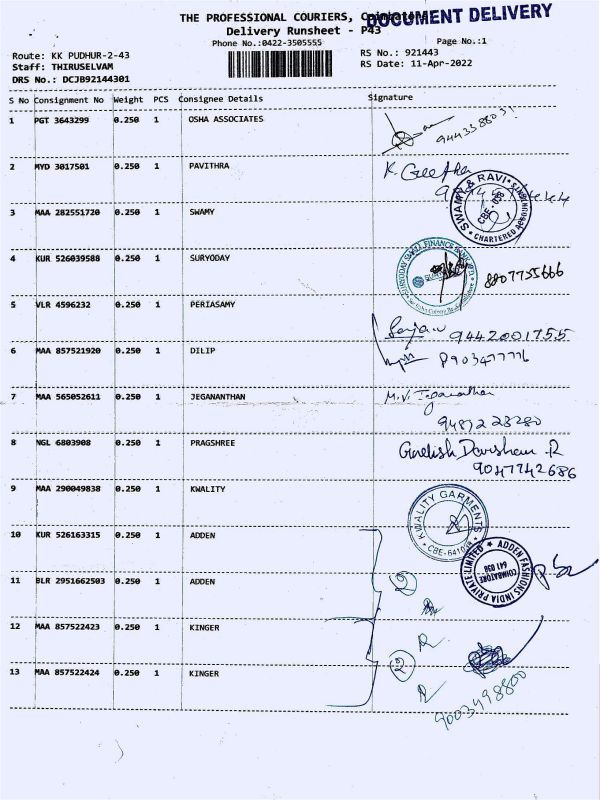 DOCUMENT DELIVERY
THE PROFESSIONAL COURIERS, Coimbatore
Delivery Runsheet - P43
Phone No.:0422-3505555
Page No.:1
Route: KK PUDHUR-2-43
RS No.: 921443
Staff: THIRUSELVAM
RS Date: 11-Apr-2022
DRS No.: DCJB92144301
S No Consignment No Weight PCS Consignee Details Signature
1 PGT 3643299 0.250 1 OSHA ASSOCIATES
2 MYD 3017501 0.250 1 PAVITHRA K. Geetha
3 MAA 282551720 0.250 1 SWAMY
SWAMY & RAVI
CHARTERED ACCOUNTANTS
4 KUR 526039588 0.250 1 SURYODAY 8807755666
SURYODAY SMALL FINANCE BANK LTD
5 VLR 4596232 0.250 1 PERIASAMY 9442001755
6 MAA 857521920 0.250 1 DILIP
7 MAA 565052611 0.250 1 JEGANANTHAN M.V. Jeganathan
9487223280
8 NGL 6803908 0.250 1 PRAGSHREE
9047742686
9 MAA 290049838 0.250 1 KWALITY
KWALITY GARMENTS
10 KUR 526163315 0.250 1 ADDEN
ADDEN FASHIONS INDIA PRIVATE LIMITED
COIMBATORE
641 038
11 BLR 2951662503 0.250 1 ADDEN 2
12 MAA 857522423 0.250 1 KINGER
13 MAA 857522424 0.250 1 KINGER 2
9003498800